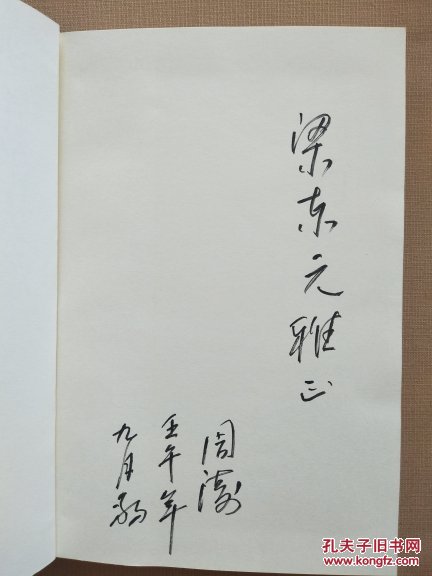 梁东元雅正
周涛
壬午年
九月
孔夫子旧书网
kongfz.com